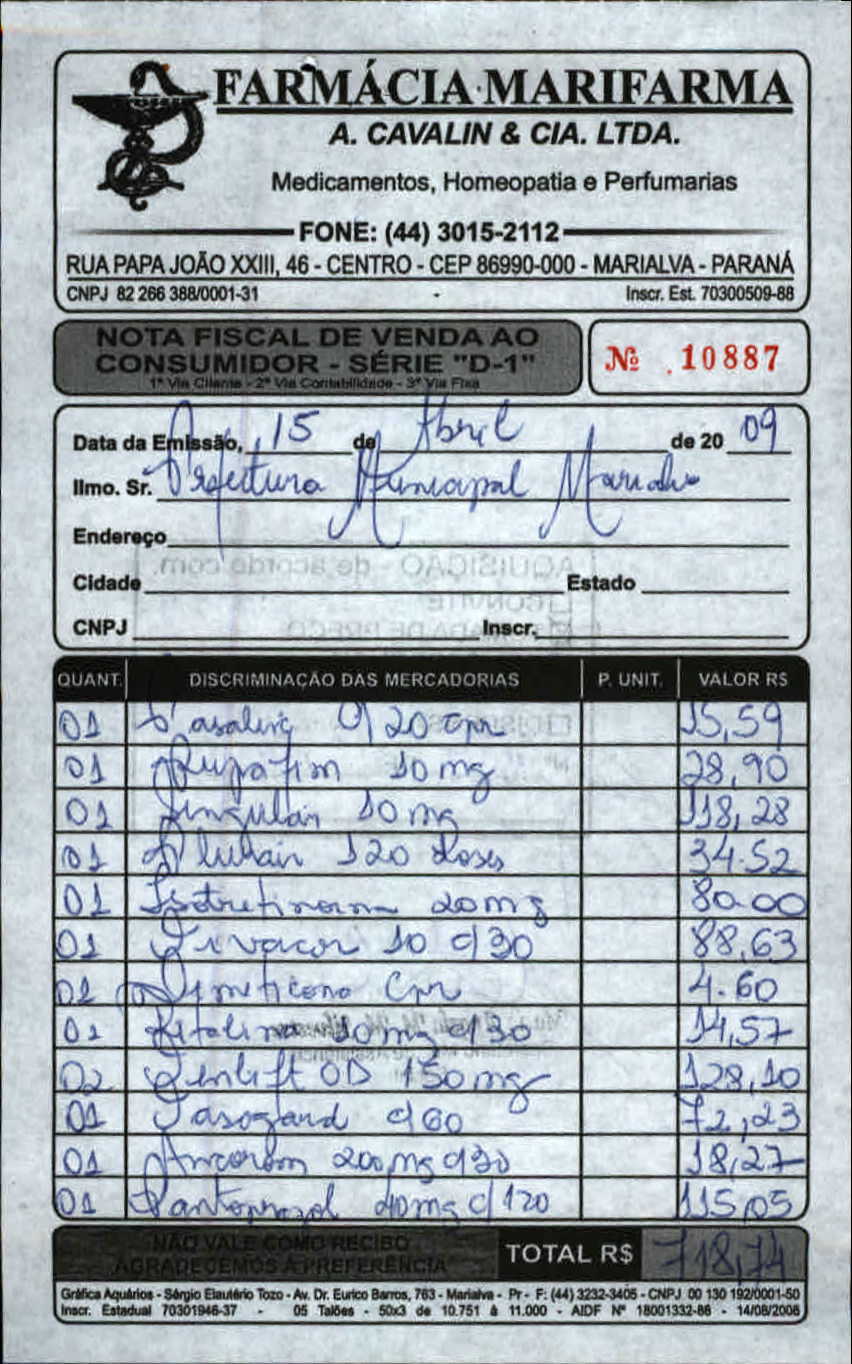 FARMÁCIA MARIFARMA
A. CAVALIN & CIA. LTDA.
Medicamentos, Homeopatia e Perfumarias
FONE: (44) 3015-2112
RUA PAPA JOÃO XXIII, 46 - CENTRO - CEP 86990-000 - MARIALVA - PARANÁ
CNPJ 82 266 388/0001-31 Inscr. Est. 70300509-88
NOTA FISCAL DE VENDA AO
CONSUMIDOR - SÉRIE "D-1"
1ª Via Cliente - 2ª Via Contabilidade - 3ª Via Fixa
Nº 10887
Data da Emissão, 15 de Abril de 20 09
Ilmo. Sr. Prefeitura Municipal
Endereço
Cidade Estado
CNPJ Inscr.
AQUISIÇÃO - de acordo com:
CONVITE
TOMADA DE PREÇO
QUANT. DISCRIMINAÇÃO DAS MERCADORIAS P. UNIT. VALOR R$
01 c/ 20 cpr 15,59
01 10 mg 28,90
01 Singulair 10 mg 118,28
01 120 doses 34.52
01 20 mg 80.00
01 10 c/30 88,63
01 cpr 4.60
01 Ritalina 10 mg c/30 14,57
02 OD 150 mg 128,10
01 c/60 72,23
01 Ancoron 200 mg c/30 18,27
01 Pantoprazol 40mg c/ 120 115,05
NÃO VALE COMO RECIBO
AGRADECEMOS A PREFERÊNCIA
TOTAL R$ 718,74
Gráfica Aquários - Sérgio Elautério Tozo - Av. Dr. Eurico Barros, 763 - Marialva - Pr - F: (44) 3232-3405 - CNPJ 00 130 192/0001-50
Inscr. Estadual 70301946-37 - 05 Talões - 50x3 de 10.751 à 11.000 - AIDF Nº 18001332-86 - 14/08/2008